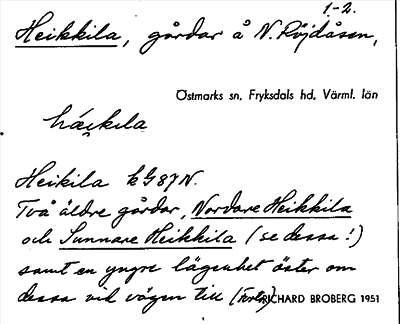 1.-2.
Heikkila, gårdar å N. Röjdåsen,
Östmarks sn, Fryksdals hd, Värml. län
häckila
Heikila kG87N.
Två äldre gårdar, Nordare Heikkila
och Sunnare Heikkila (se dessa!)
samt en yngre lägenhet öster om
dessa vid vägen till (forts.)
RICHARD BROBERG 1951